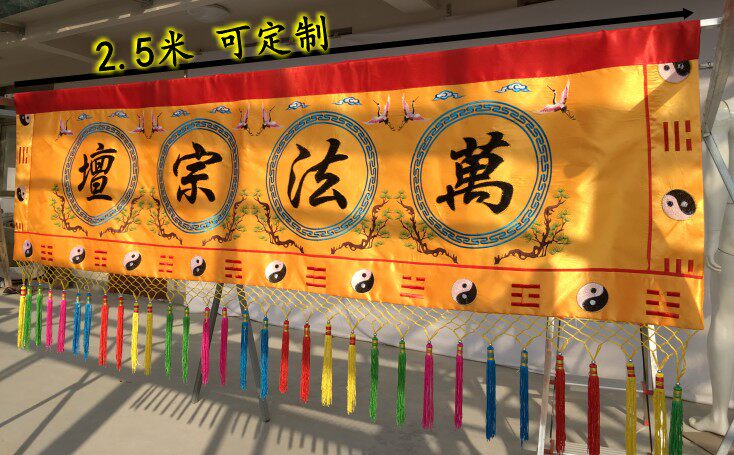 2.5米 可定制
萬法宗壇